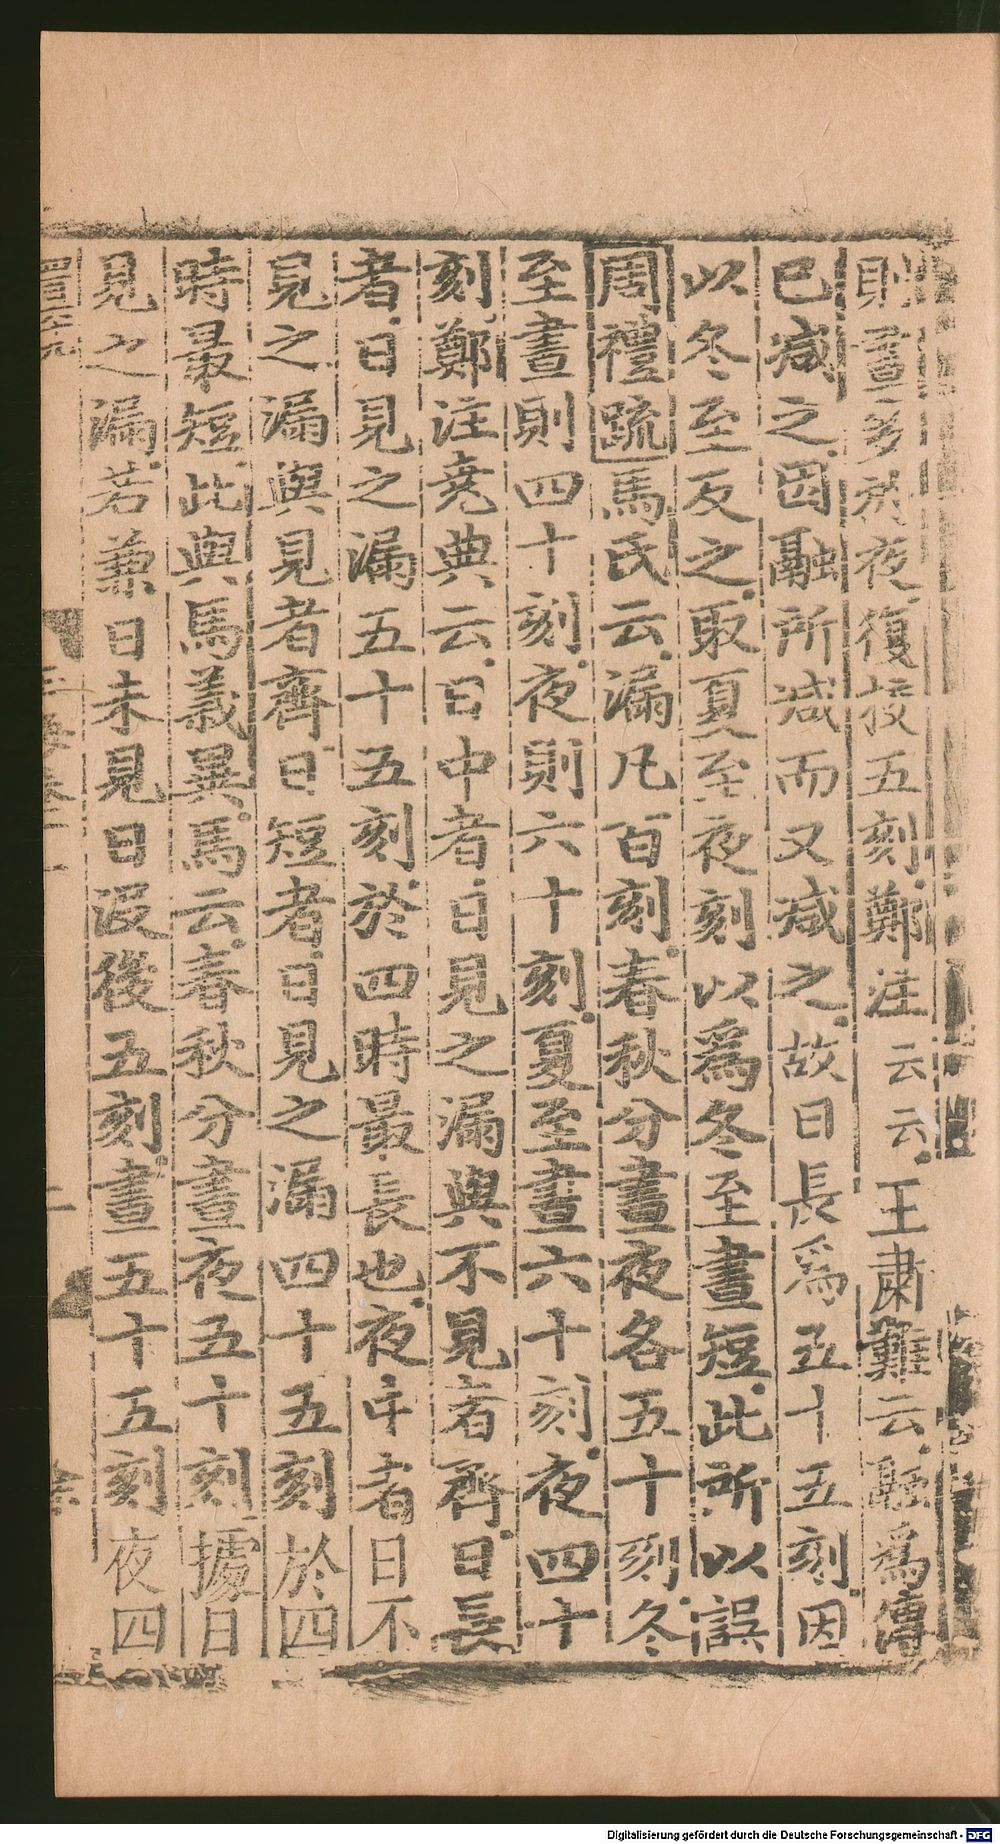 則晝多於夜復校五刻鄭注云云王肅難云融爲傳
巳减之因融所减而又减之故日長爲五十五刻因
以冬至反之取夏至夜刻以爲冬至晝短此所以誤
周禮疏馬氏云漏凡百刻春秋分晝夜各五十刻冬
至晝則四十刻夜則六十刻夏至晝六十刻夜四十
刻鄭注堯典云日中者日見之漏與不見者齊日長
者日見之漏五十五刻於四時最長也夜中者日不
見之漏與見者齊日短者日見之漏四十五刻於四
時最短此與馬義異馬云春秋分晝夜五十刻據日
見之漏若兼日未見日没後五刻晝五十五刻夜四
Digitalisierung gefördert durch die Deutsche Forschungsgemeinschaft - DFG